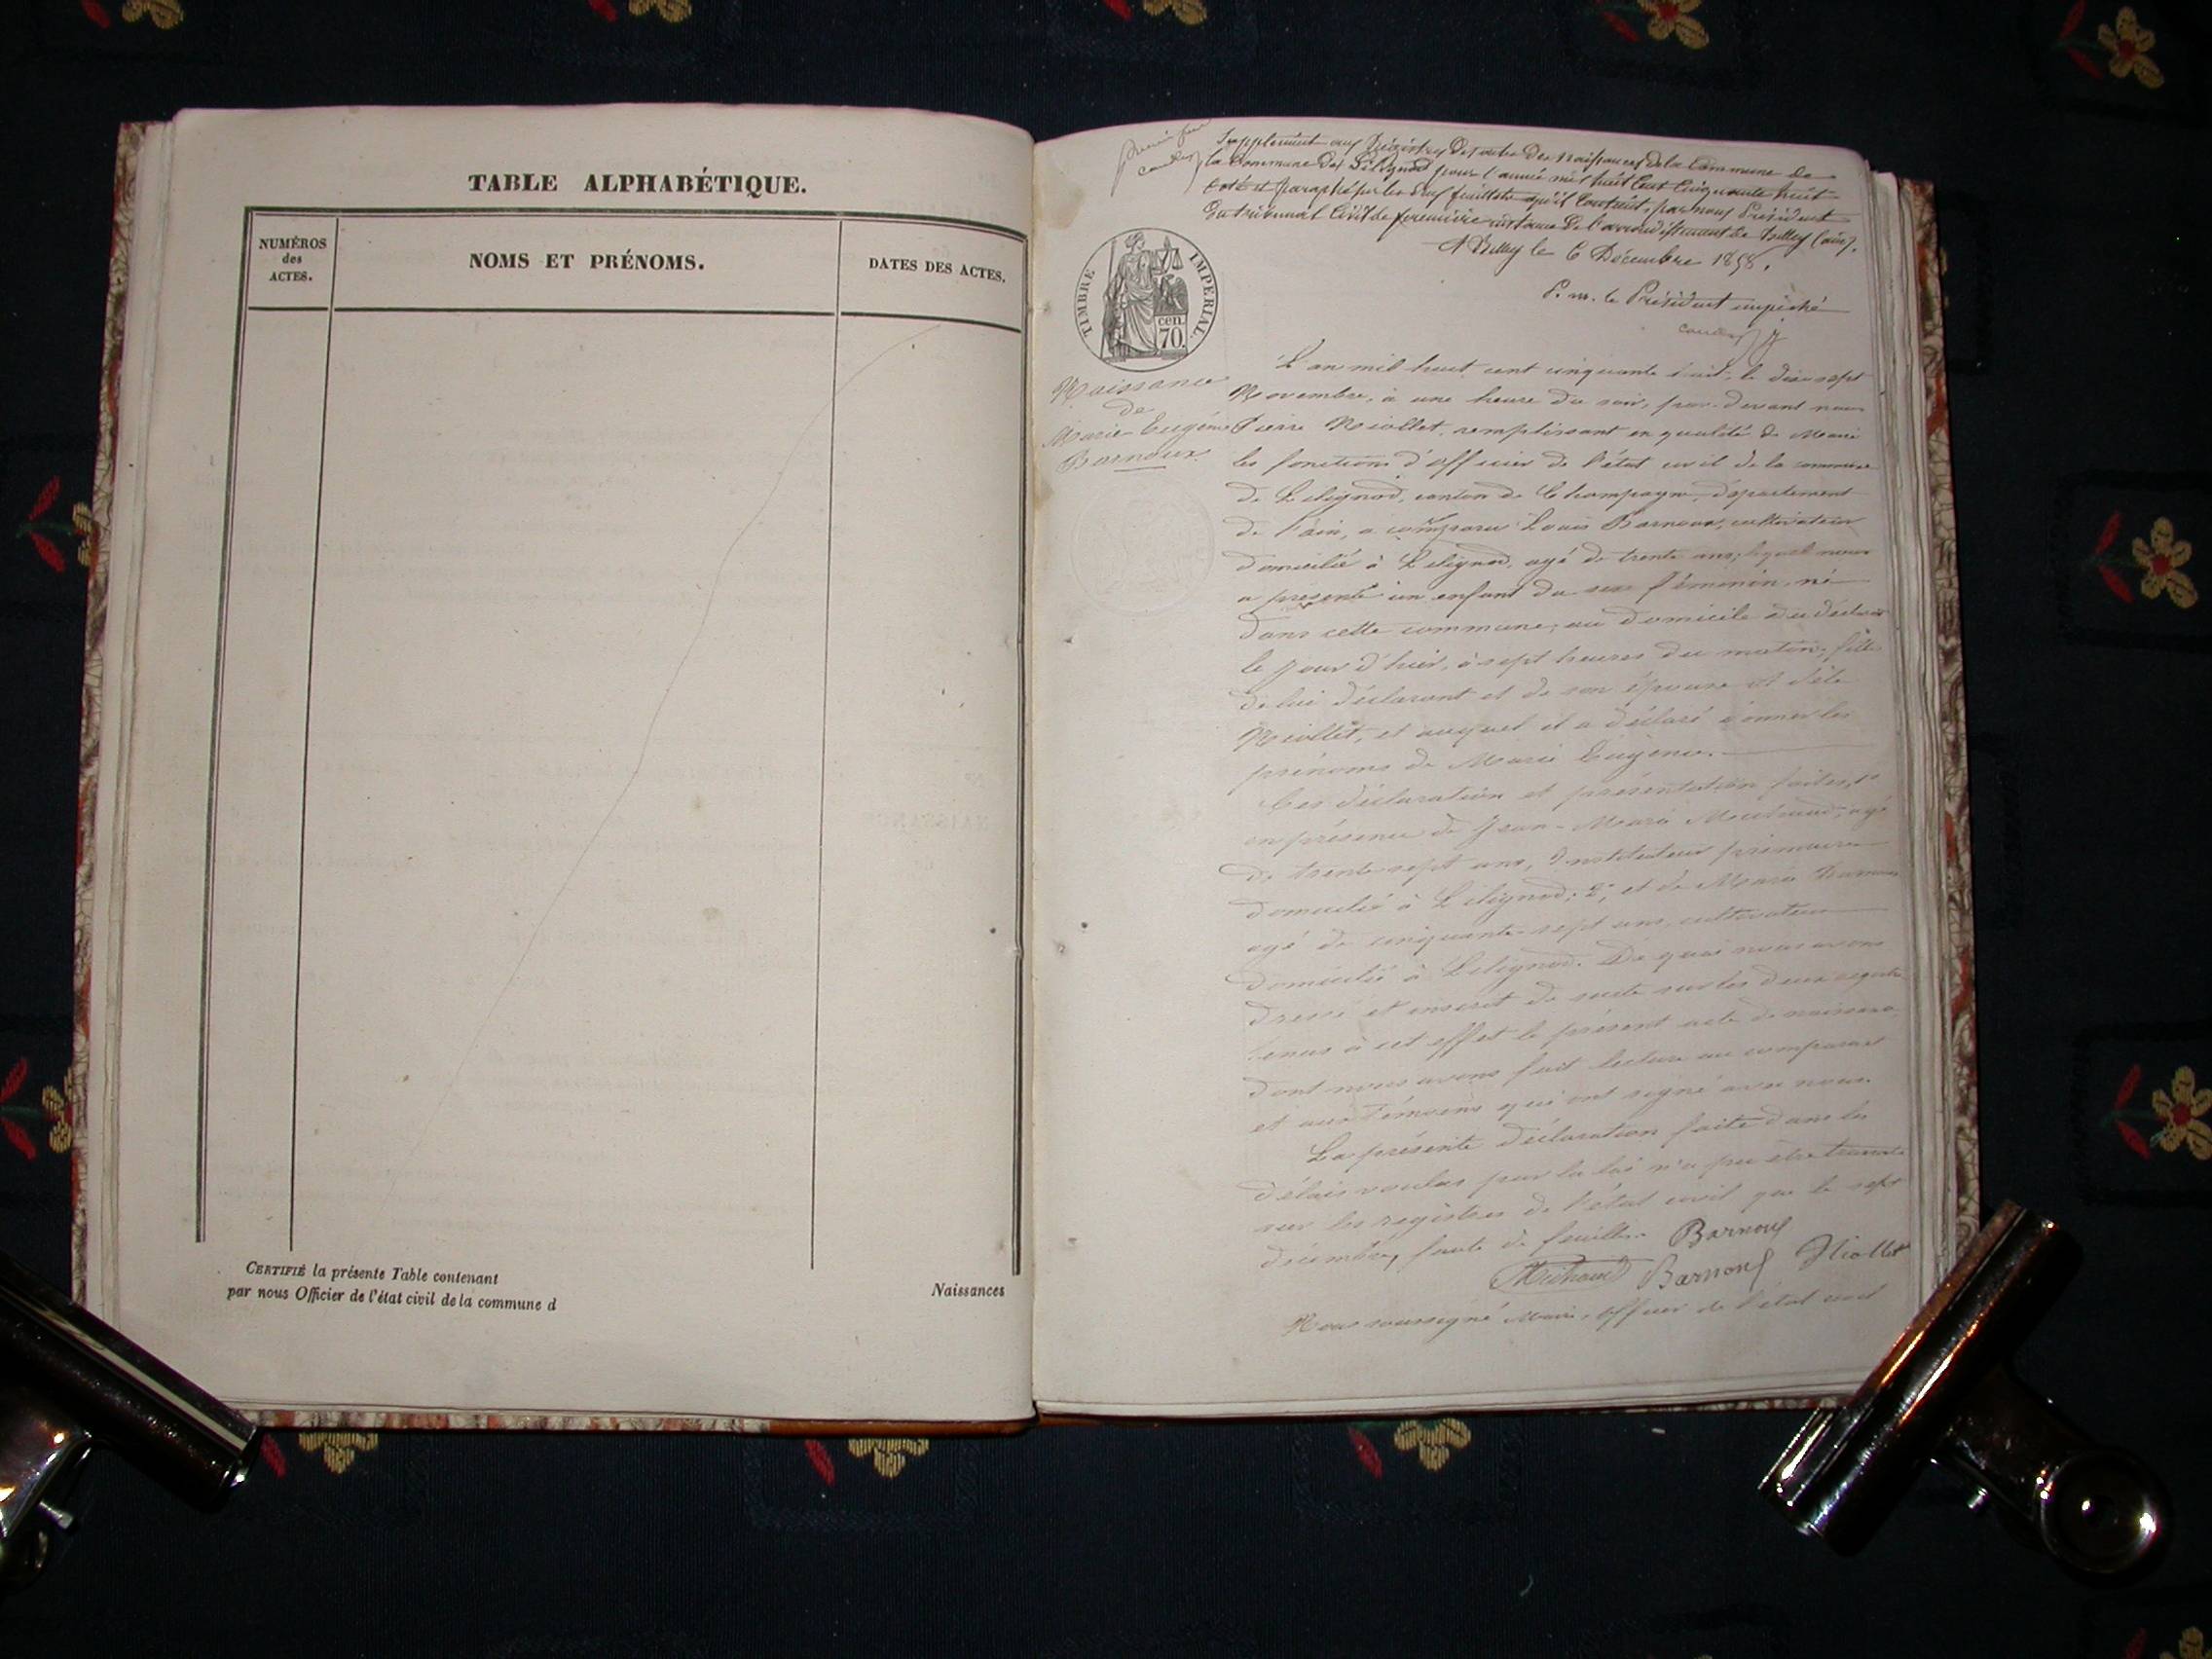 TABLE ALPHABÉTIQUE.
NUMÉROS
des
ACTES.
NOMS ET PRÉNOMS.
DATES DES ACTES.
CERTIFIÉ la présente Table contenant
par nous Officier de l'état civil de la commune d
Naissances
Supplément aux Régistres des actes des naissances de la Commune de
la Commune de pour l'année mil huit Cent Cinquante huit
Coté et paraphé par les feuillets qu'il Contient, par nous Président
du tribunal Civil de première instance de l'arrondissement de Belley (ain).
A Belley le 6 Décembre 1858.
P. m. le Président empêché
TIMBRE IMPERIAL.
cen.
70.
Naissance
de
Marie Eugénie
Barnoux
L'an mil huit cent cinquante huit, le dix sept
Novembre, à une heure du soir, par devant nous
Pierre Niollet, remplissant en qualité de Maire
les fonctions d'officier de l'état civil de la commune
de Lilignod, canton de Champagne, département
de l'ain, a comparu Louis Barnoux, cultivateur
domicilié à Lilignod, agé de trente ans, lequel nous
a présenté un enfant du sexe féminin, né
dans cette commune, au domicile du déclarant
le jour d'hier, à sept heures du matin, fille
de lui déclarant et de son épouse
Niollet, et auquel il a déclaré donner les
prénoms de Marie Eugénie.
Ces déclaration et présentation faites, 1°
en présence de Jean-Marie Michaud, agé
de trente sept ans, Instituteur primaire
domicilié à Lilignod; 2°, et de Marie
agé de cinquante-sept ans, cultivateur
domicilié à Lilignod. De quoi nous avons
dressé et inscrit de suite sur les deux registres
tenus à cet effet le présent acte de naissance,
dont nous avons fait lecture au comparant
et aux témoins qui ont signé avec nous.
La présente déclaration faite dans les
délais voulus par la loi n'a pu être transcrite
sur les registres de l'état civil que le sept
décembre, faute de feuilles. Barnoux
Michaud Barnoux Niollet
Nous soussigné Maire, officier de l'état civil